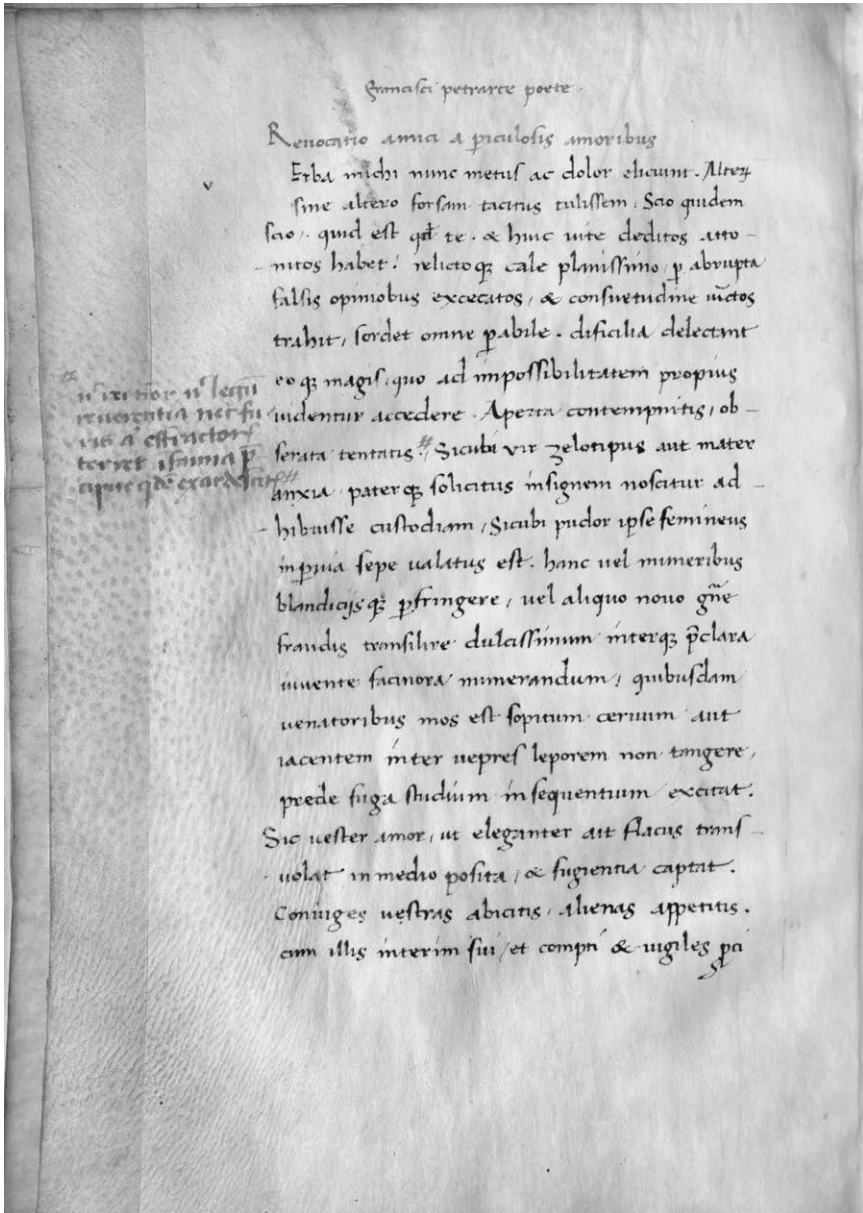 Francisci petrarce poete.
Reuocatio amici a piculosis amoribus
v
Erba michi nunc metus ac dolor eliciunt. Alterꝝ
sine altero forsam tacitus tulissem. Scio quidem
scio. quid est qđ te. & huic uite deditos atto-
nitos habet? relictoqꝫ cale planissimo, ꝑ abrupta
falsis opiniobus excecatos, & consuetudine uīctos
trahit, sordet omne ꝑabile. dificilia delectant
eo qꝫ magis, quo ad impossibilitatem propius
uidentur accedere. Aperta contempnitis, ob-
serata tentatis. # Sicubi vir zelotipus aut mater
anxia paterqꝫ solicitus insignem noscitur ad-
hibuisse custodiam, Sicubi pudor ipse femineus
inꝑuia sepe ualatus est. hanc uel muneribus
blandicijsqꝫ ꝑfringere, vel aliquo nouo gn̄e
fraudis transilire dulcissimum interqꝫ p̄clara
iuuente facinora numerandum; quibusdam
uenatoribus mos est sopitum ceruum aut
iacentem inter uepres leporem non tangere,
prede fuga studium insequentium excitat.
Sic uester amor, ut eleganter ait flacus trans-
uolat in medio posita, & fugientia captat.
Coniuges uestras abicitis, alienas appetitis.
cum illis interim sui, et compti & uigiles ꝓci
legū
reuerentia nec fu
ris effractor
terret